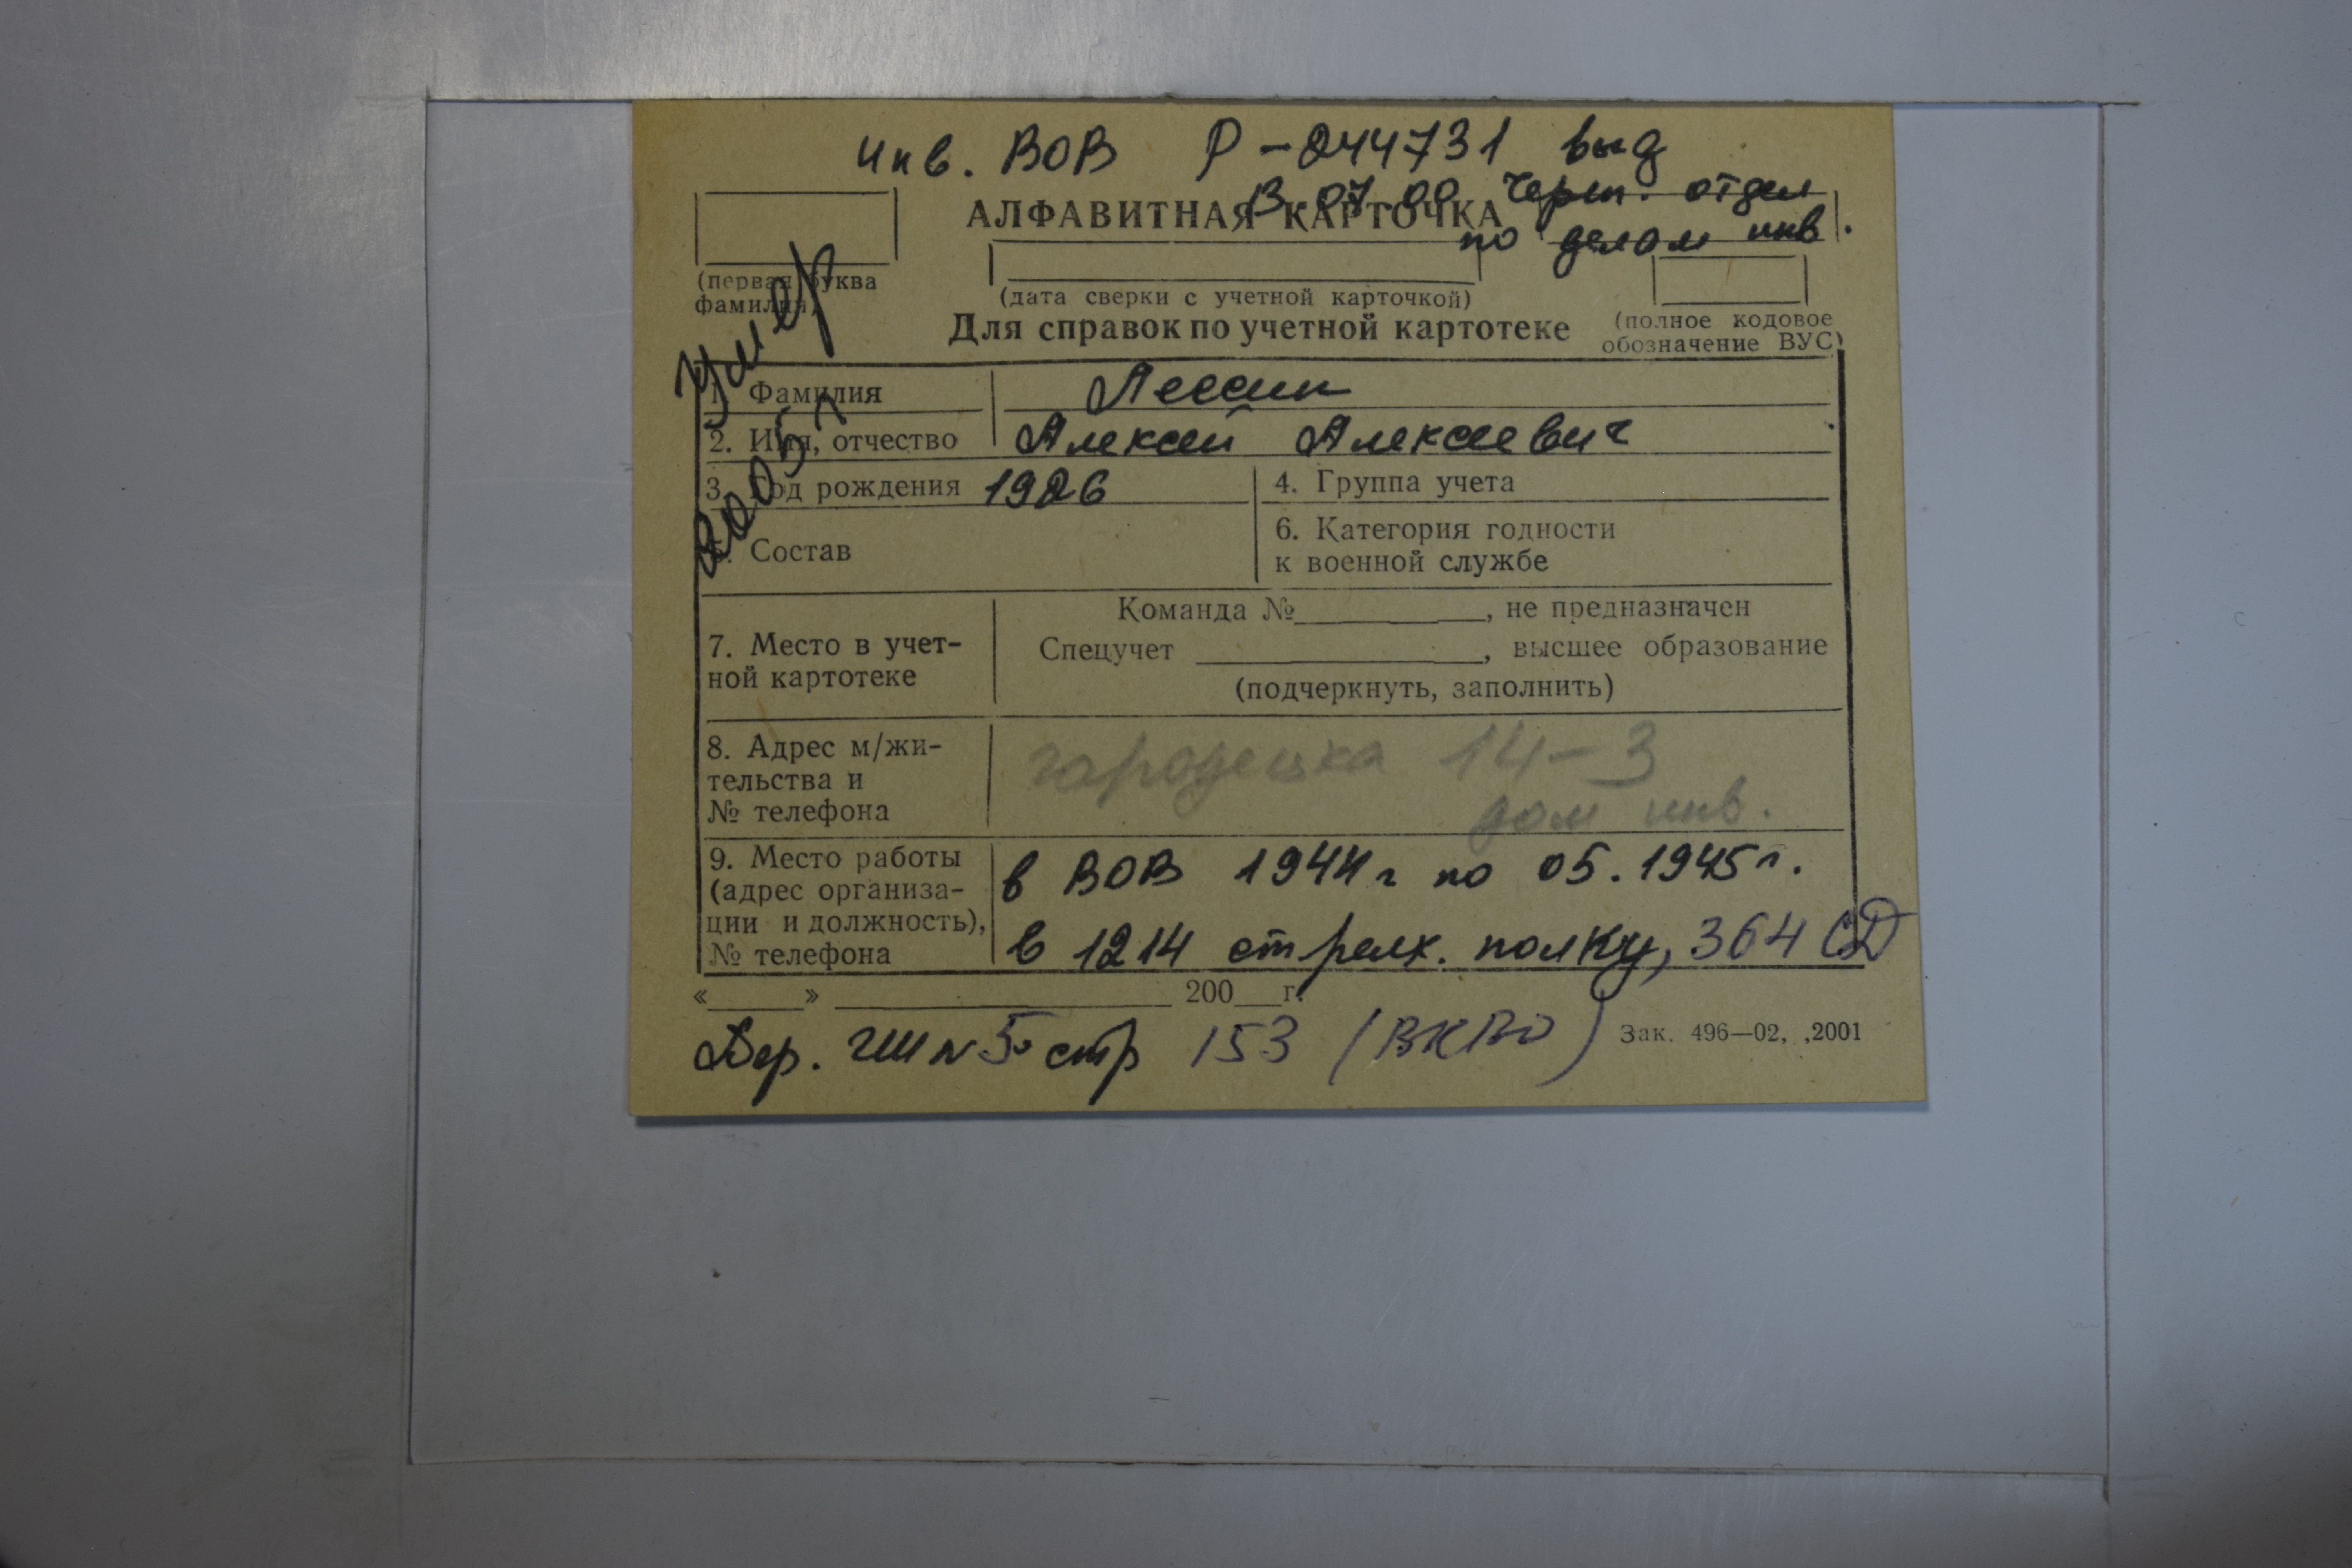 инв. ВОВ Р-244731 выд
13.07.00 Череп. отдел
по делам инв.
АЛФАВИТНАЯ КАРТОЧКА
(первая буква
фамилия)
(дата сверки с учетной карточкой)
(полное кодовое
обозначение ВУС)
Для справок по учетной картотеке
Умер
2005 г
1. Фамилия
2. Имя, отчество Алексей Алексеевич
3. Год рождения 1926
4. Группа учета
5. Состав
6. Категория годности
к военной службе
7. Место в учет-
ной картотеке
Команда №__________, не предназначен
Спецучет _______________, высшее образование
(подчеркнуть, заполнить)
8. Адрес м/жи-
тельства и
№ телефона
14-3
дом инв.
9. Место работы
(адрес организа-
ции и должность),
№ телефона
в ВОВ 1944 г по 05.1945 г.
в 1214 стрелк. полку, 364 СД
«_____» _________________ 200__г.
Пер. ГШ № 5 стр 153 (ВКВО)
Зак. 496—02, ,2001